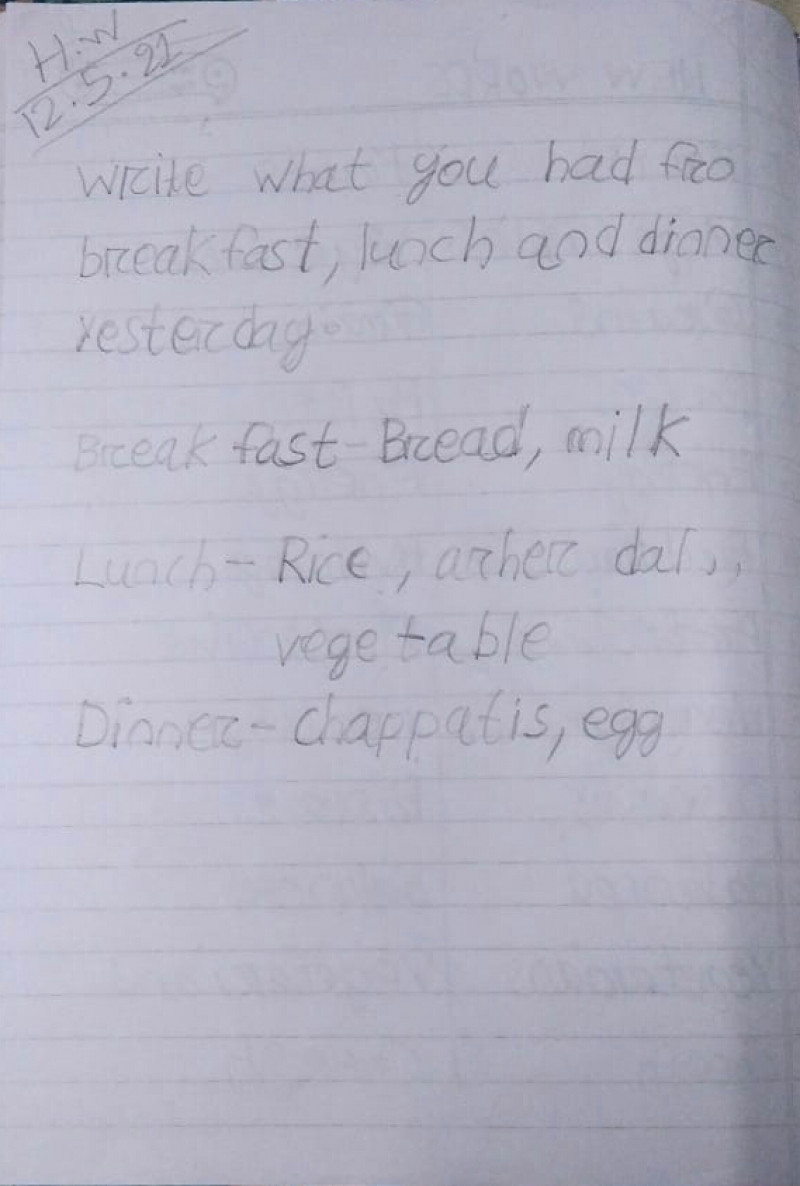 H.W
12.5.21
Write what you had fro
breakfast, lunch and dinner
yesterday.
Break fast - Bread, milk
Lunch - Rice, arher dal,,
vegetable
Dinner - chappatis, egg